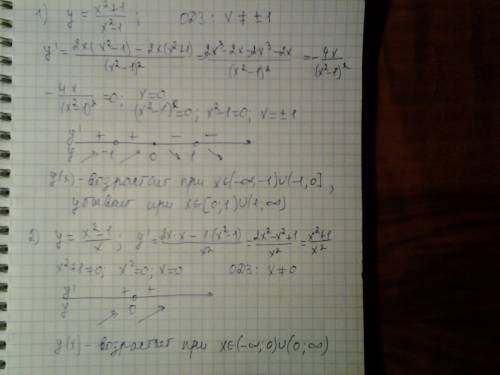 1) y = (x²+1)/(x²-1); ОДЗ: x ≠ ±1
y' = (2x(x²-1) - 2x(x²+1))/(x²-1)² = (2x³-2x-2x³-2x)/(x²-1)² = -4x/(x²-1)²
-4x/(x²-1)² = 0; x=0
(x²-1)²=0; x²-1=0; x=±1
y' + + - -
y -1 0 1
y(x) - возрастает при x∈(-∞;-1)∪(-1;0],
убывает при x∈[0;1)∪(1;∞)
2) y = (x²-1)/x; y' = (2x·x - 1(x²-1))/x² = (2x²-x²+1)/x² = (x²+1)/x²
x²+1≠0, x²=0; x=0 ОДЗ: x≠0
y' + +
y 0
y(x) - возрастает при x∈(-∞;0)∪(0;∞)